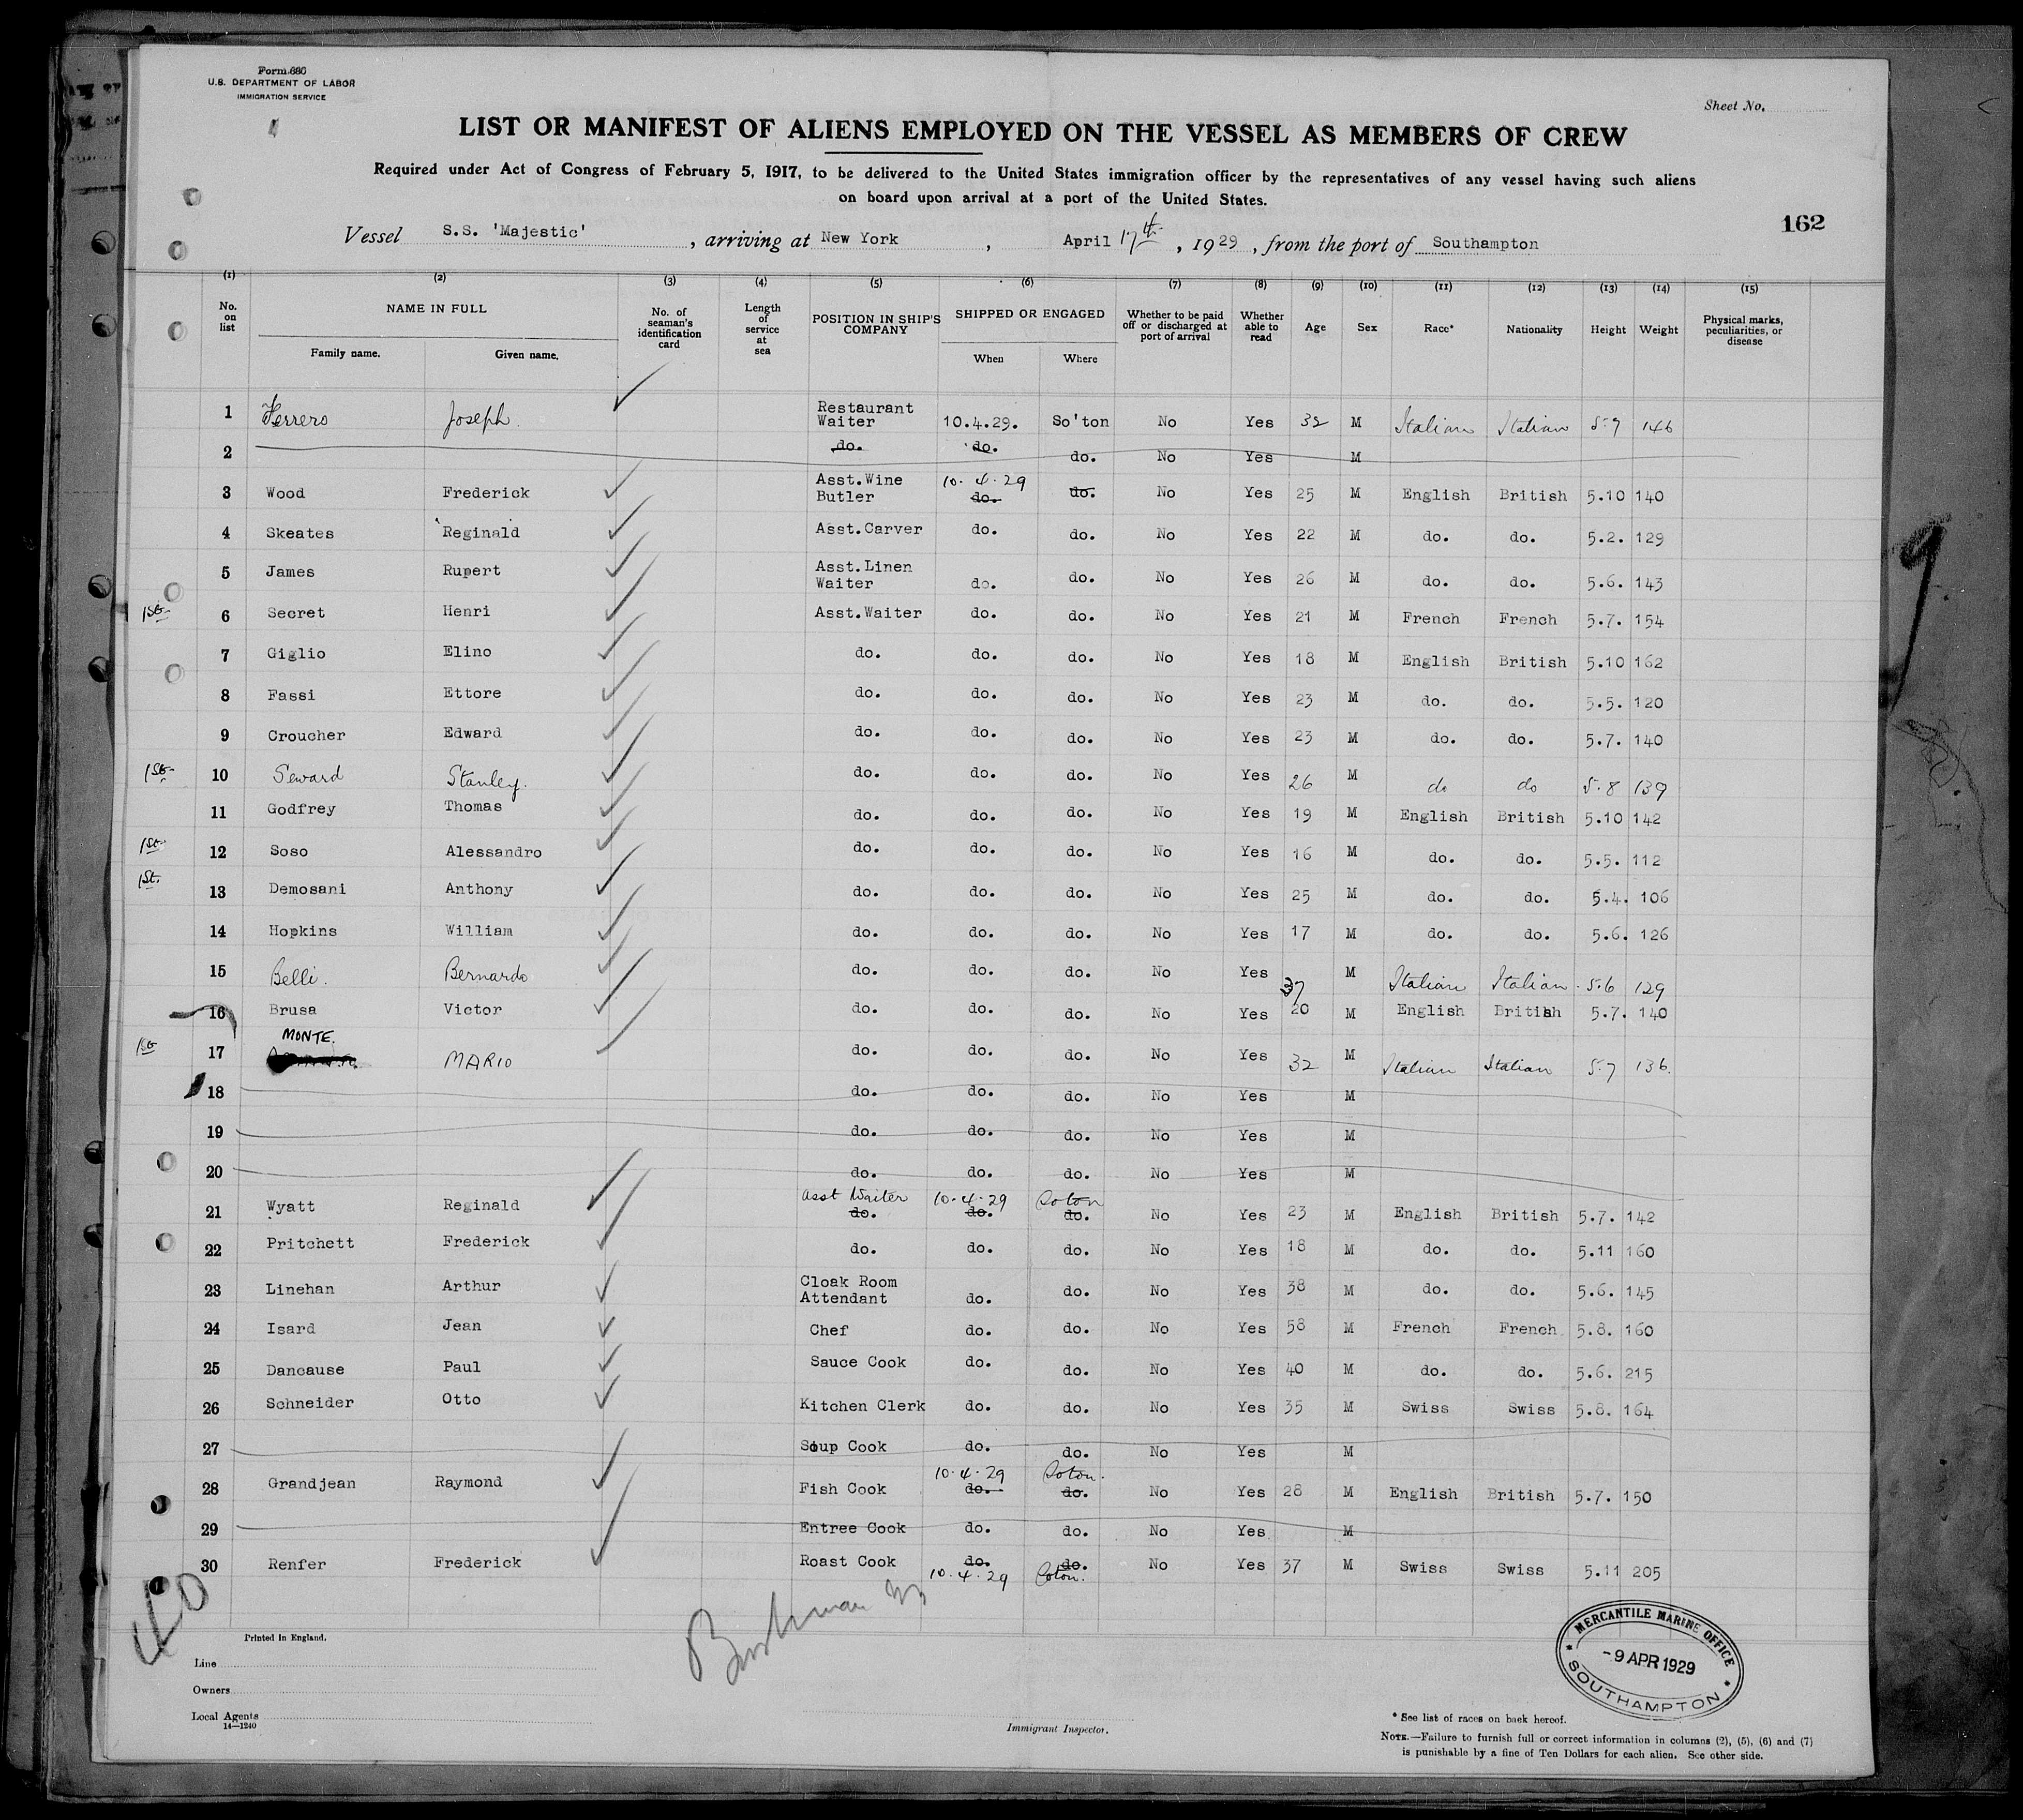 Form 680
U.S. DEPARTMENT OF LABOR
IMMIGRATION SERVICE
Sheet No.
LIST OR MANIFEST OF ALIENS EMPLOYED ON THE VESSEL AS MEMBERS OF CREW
Required under Act of Congress of February 5, 1917, to be delivered to the United States immigration officer by the representatives of any vessel having such aliens
on board upon arrival at a port of the United States.
162
Vessel S.S. 'Majestic', arriving at New York, April 17th, 1929, from the port of Southampton
(1) (2) (3) (4) (5) (6) (7) (8) (9) (10) (11) (12) (13) (14) (15)
No. on list NAME IN FULL Family name. Given name. No. of seaman's identification card Length of service at sea POSITION IN SHIP'S COMPANY SHIPPED OR ENGAGED When Where Whether to be paid off or discharged at port of arrival Whether able to read Age Sex Race* Nationality Height Weight Physical marks, peculiarities, or disease
1 Ferrero Joseph. Restaurant Waiter 10.4.29. So'ton No Yes 32 M Italian Italian 5.7 146
2 do. do. do. No Yes M
3 Wood Frederick Asst.Wine Butler 10.4.29 do. do. No Yes 25 M English British 5.10 140
4 Skeates Reginald Asst.Carver do. do. No Yes 22 M do. do. 5.2. 129
5 James Rupert Asst.Linen Waiter do. do. No Yes 26 M do. do. 5.6. 143
1st 6 Secret Henri Asst.Waiter do. do. No Yes 21 M French French 5.7. 154
7 Giglio Elino do. do. do. No Yes 18 M English British 5.10 162
8 Fassi Ettore do. do. do. No Yes 23 M do. do. 5.5. 120
9 Croucher Edward do. do. do. No Yes 23 M do. do. 5.7. 140
1st 10 Seward Stanley. do. do. do. No Yes 26 M do do 5.8 139
11 Godfrey Thomas do. do. do. No Yes 19 M English British 5.10 142
1st 12 Soso Alessandro do. do. do. No Yes 16 M do. do. 5.5. 112
1st. 13 Demosani Anthony do. do. do. No Yes 25 M do. do. 5.4. 106
14 Hopkins William do. do. do. No Yes 17 M do. do. 5.6. 126
15 Belli. Bernardo do. do. do. No Yes 37 M Italian Italian 5.6 129
16 Brusa Victor do. do. do. No Yes 20 M English British 5.7. 140
1st 17 MONTE. MARIO do. do. do. No Yes 32 M Italian Italian 5.7 136.
18 do. do. do. No Yes M
19 do. do. do. No Yes M
20 do. do. do. No Yes M
21 Wyatt Reginald Asst Waiter do. 10.4.29 do. Soton do. No Yes 23 M English British 5.7. 142
22 Pritchett Frederick do. do. do. No Yes 18 M do. do. 5.11 160
23 Linehan Arthur Cloak Room Attendant do. do. No Yes 38 M do. do. 5.6. 145
24 Isard Jean Chef do. do. No Yes 58 M French French 5.8. 160
25 Dancause Paul Sauce Cook do. do. No Yes 40 M do. do. 5.6. 215
26 Schneider Otto Kitchen Clerk do. do. No Yes 35 M Swiss Swiss 5.8. 164
27 Soup Cook do. do. No Yes M
28 Grandjean Raymond Fish Cook 10.4.29 do. Soton. do. No Yes 28 M English British 5.7. 150
29 Entree Cook do. do. No Yes M
30 Renfer Frederick Roast Cook do. 10.4.29 do. Soton. No Yes 37 M Swiss Swiss 5.11 205
Printed in England.
Line
Owners
Local Agents
14—1240
Immigrant Inspector.
MERCANTILE MARINE OFFICE
-9 APR 1929
SOUTHAMPTON
* See list of races on back hereof.
NOTE.—Failure to furnish full or correct information in columns (2), (5), (6) and (7)
is punishable by a fine of Ten Dollars for each alien. See other side.